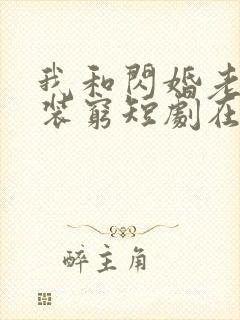 我和閃婚老
裝窮短劇在
醉主角